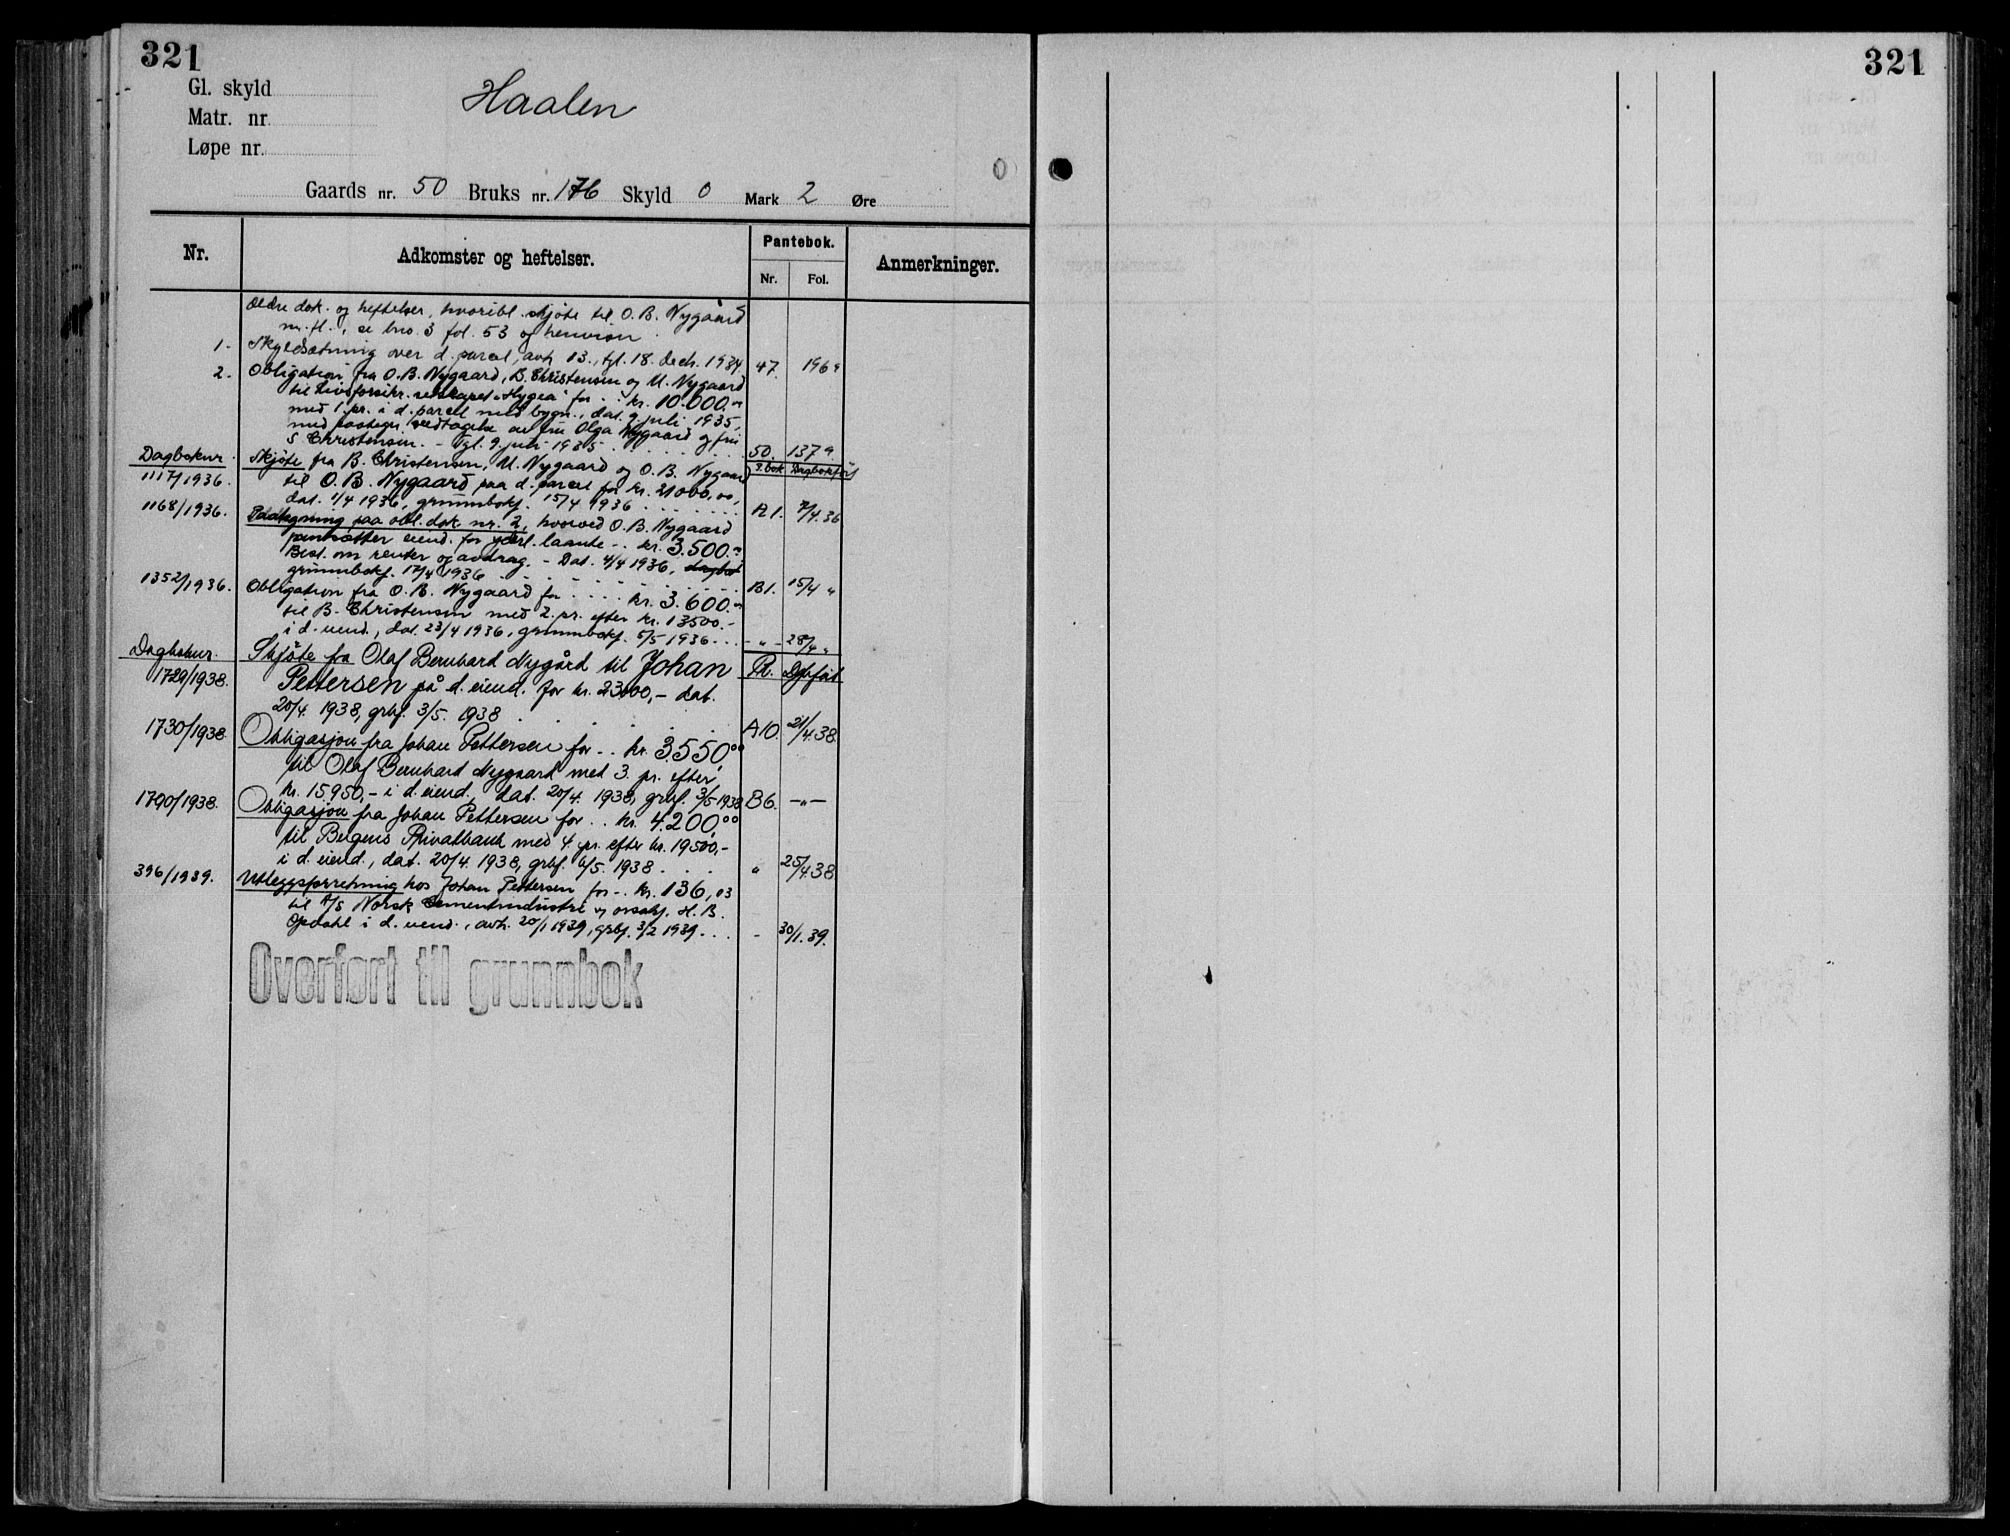 321
321
Gl. skyld
Matr. nr.
Løpe nr.
Haalen
Gaards nr. 50 Bruks nr. 176 Skyld 0 Mark 2 Øre
Nr. Adkomster og heftelser. Pantebok. Anmerkninger.
Nr. Fol.
Ældre dok. og heftelser, hvoribl. skjøte til O. B. Nygaard
m. fl., se bno. 3 fol. 53 og henvisn.
1. Skyldsætning over d. parcel, avh. 13., tgl. 18. decb. 1934. 47. 196
2. Obligation fra O. B. Nygaard, B. Christensen og U. Nygaard
til Livsforsikr.selskapet "Hygea" for .. kr. 10.000.-
med 1. pr. i d. parcel med bygn., dat. 9. juli 1935,
med paategn. vedtagelse av fru Olga Nygaard og fru
S. Christensen. - Tgl. 9. juli 1935 50. 137
Dagboknr. Skjøte fra B. Christensen, U. Nygaard og O. B. Nygaard P.bok Dagbokført
1117/1936. til O. B. Nygaard paa d. parcel for kr. 21000,00,
dat. 1/4 1936, grunnbokf. 15/4 1936 A 1. 7/4.36
1168/1936. Paategning paa obl. dok. nr. 2, hvorved O. B. Nygaard
pantsætter eiend. for yderl. laante .. kr. 3.500.-
Best. om renter og avdrag. - Dat. 4/4 1936, dagbok
grunnbokf. 17/4 1936 B1. 15/4 "
1352/1936. Obligation fra O. B. Nygaard for .... kr. 3.600.-
til B. Christensen med 2. pr. efter kr. 13500.-
i d. eiend., dat. 23/4 1936, grunnbokf. 5/5 1936 ... - " - 28/4 "
Dagboknr. Skjøte fra Olaf Bernhard Nygård til Johan Pb. Dgb.ført
1729/1938. Pettersen på d. eiend. for kr. 23000,- dat.
20/4. 1938, grbf. 3/5. 1938 A10. 21/4.38.
1730/1938. Obligasjon fra Johan Pettersen for .. kr. 3550,00
til Olaf Bernhard Nygaard med 3. pr. efter
kr. 15.950,- i d. eiend., dat. 20/4. 1938, grbf. 3/5 1938 B6. - " -
1790/1938. Obligasjon fra Johan Pettersen for .. kr. 4.200,00
til Bergens Privatbank med 4. pr. efter kr. 19500,-
i d. eiend., dat. 20/4. 1938, grbf. 6/5. 1938 .... " 25/4.38.
396/1939. Utleggsforretning hos Johan Pettersen for .. kr. 136,03
til A/S Norsk Cementindustri v/ orsakf. H. B.
Opdahl i d. eiend., avh. 20/1 1939, grbf. 3/2 1939 ... - 30/1.39.
Overført til grunnbok